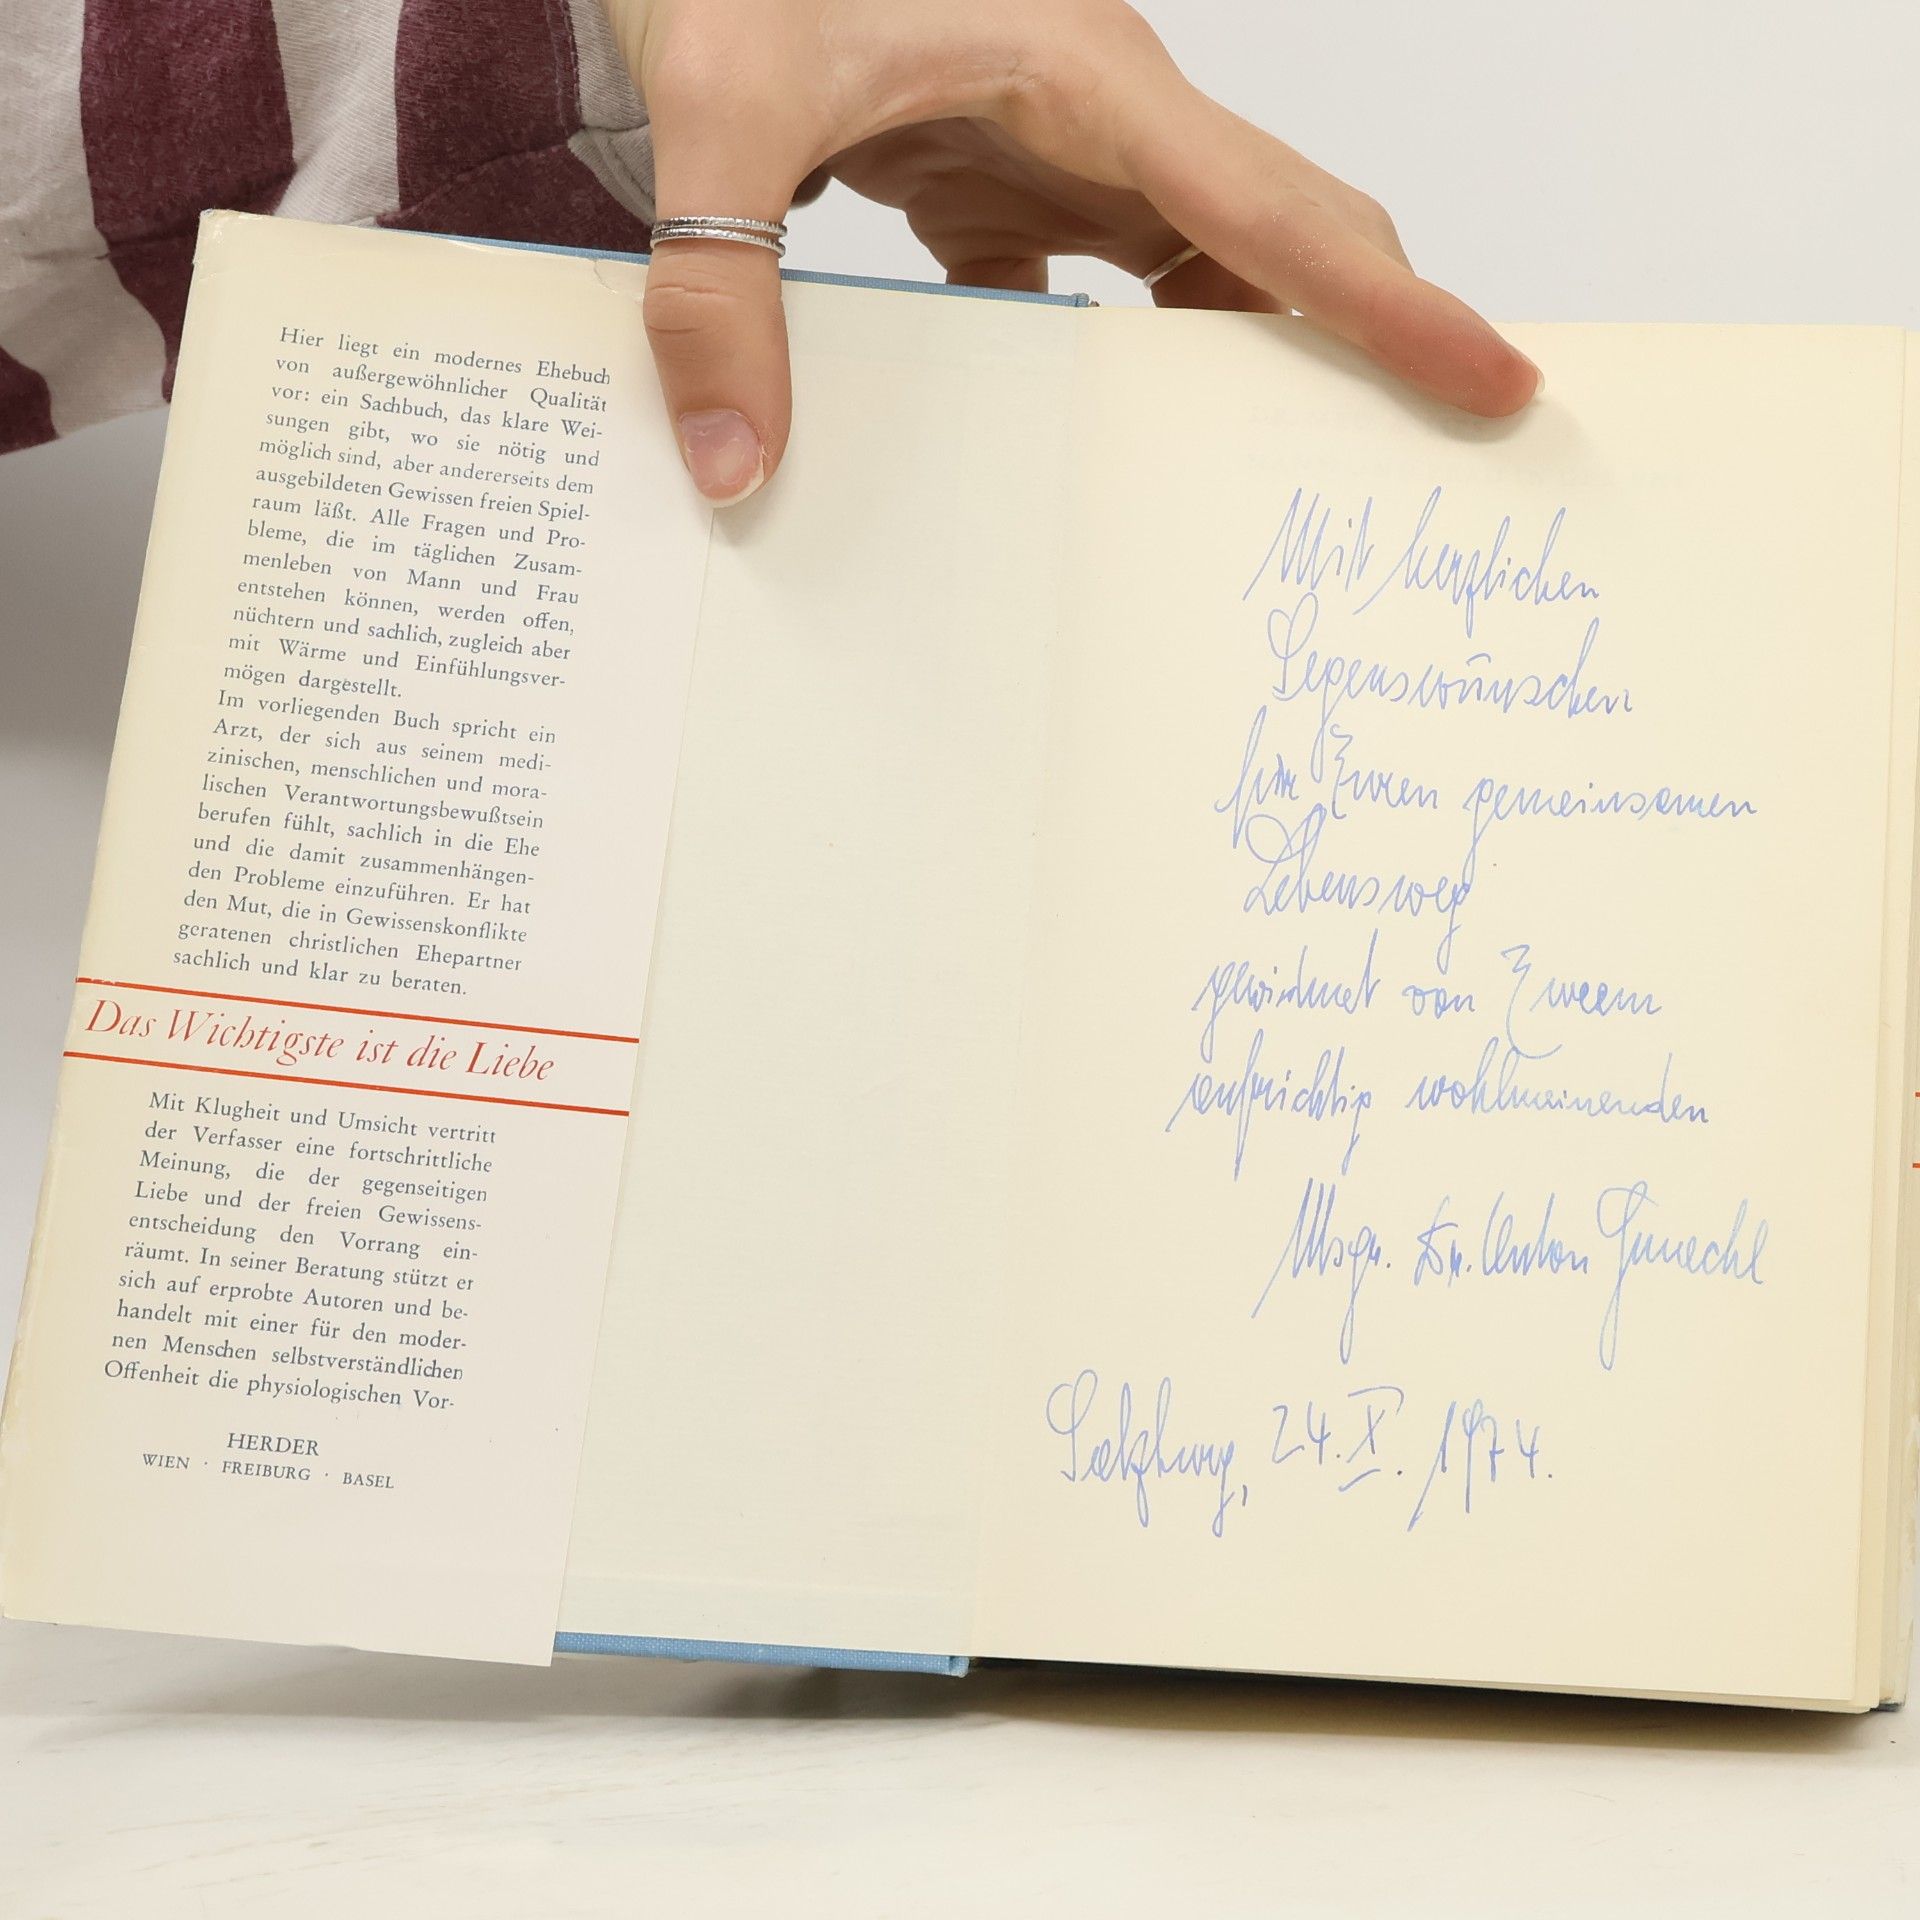 Hier liegt ein modernes Ehebuch
von außergewöhnlicher Qualität
vor: ein Sachbuch, das klare Wei-
sungen gibt, wo sie nötig und
möglich sind, aber andererseits dem
ausgebildeten Gewissen freien Spiel-
raum läßt. Alle Fragen und Pro-
bleme, die im täglichen Zusam-
menleben von Mann und Frau
entstehen können, werden offen,
nüchtern und sachlich, zugleich aber
mit Wärme und Einfühlungsver-
mögen dargestellt.
Im vorliegenden Buch spricht ein
Arzt, der sich aus seinem medi-
zinischen, menschlichen und mora-
lischen Verantwortungsbewußtsein
berufen fühlt, sachlich in die Ehe
und die damit zusammenhängen-
den Probleme einzuführen. Er hat
den Mut, die in Gewissenskonflikte
geratenen christlichen Ehepartner
sachlich und klar zu beraten.
Das Wichtigste ist die Liebe
Mit Klugheit und Umsicht vertritt
der Verfasser eine fortschrittliche
Meinung, die der gegenseitigen
Liebe und der freien Gewissens-
entscheidung den Vorrang ein-
räumt. In seiner Beratung stützt er
sich auf erprobte Autoren und be-
handelt mit einer für den moder-
nen Menschen selbstverständlichen
Offenheit die physiologischen Vor-
HERDER
WIEN · FREIBURG · BASEL
Mit herzlichen
Segenswünschen
für Euren gemeinsamen
Lebensweg
gewidmet von Eurem
aufrichtig wohlmeinenden
Msgr. Dr. Anton
Salzburg, 24. X. 1974.